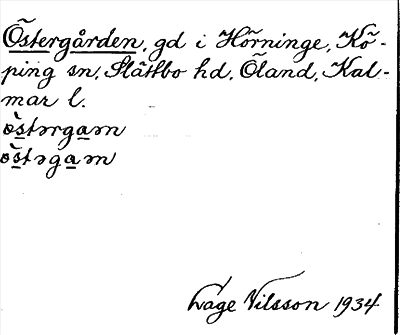 Östergården, gd i Hörninge, Kö-
ping sn, Slättbo hd, Öland, Kal-
mar l.
östərgaən
östəgaən
Lage Nilsson 1934